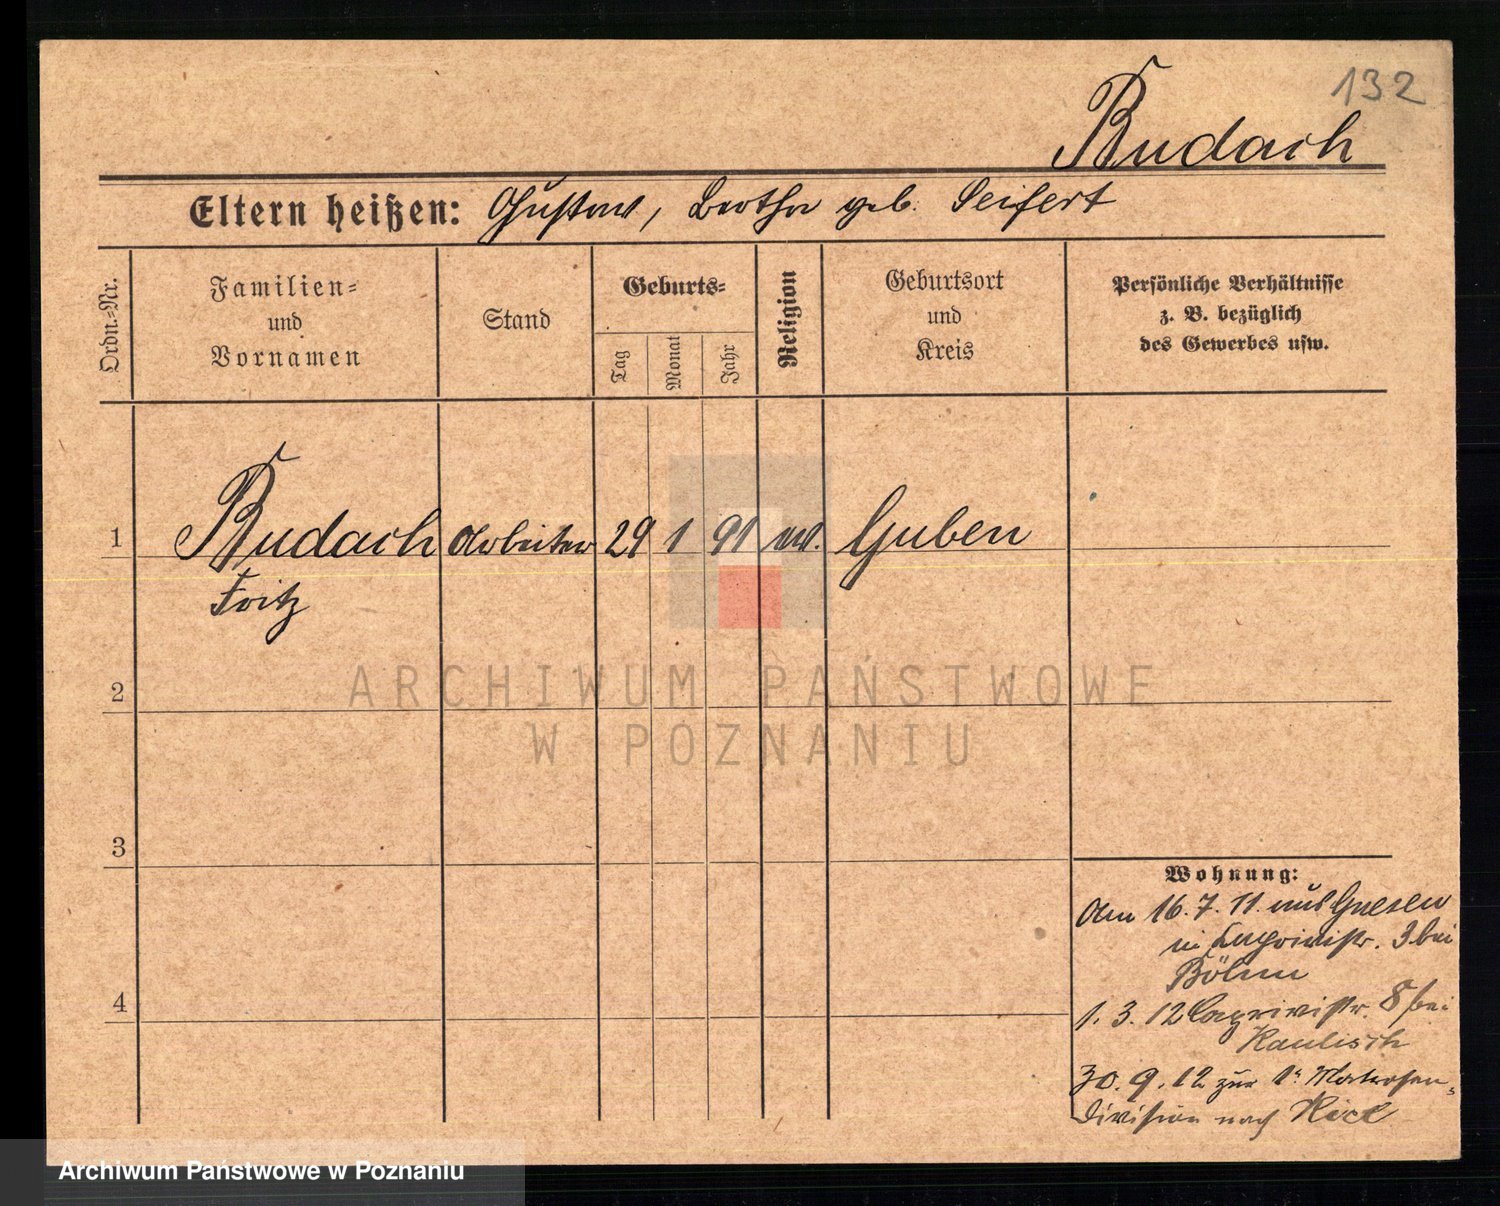 132
Budach
Eltern heißen: Gustav, Bertha geb. Seifert
Ordn.-Nr.
Familien-
und
Vornamen
Stand
Geburts-
Tag
Monat
Jahr
Religion
Geburtsort
und
Kreis
Persönliche Verhältnisse
z. B. bezüglich
des Gewerbes usw.
1 Budach Arbeiter 29 1 91 ev. Guben
Fritz
2
3
4
Wohnung:
Am 16.7.11. aus Gnesen
in 3 bei
Böhm
1.3.12 8 bei
Kaulisch
30.9.12 zur 1. Matrosen-
division nach Kiel
ARCHIWUM PAŃSTWOWE
W POZNANIU
Archiwum Państwowe w Poznaniu